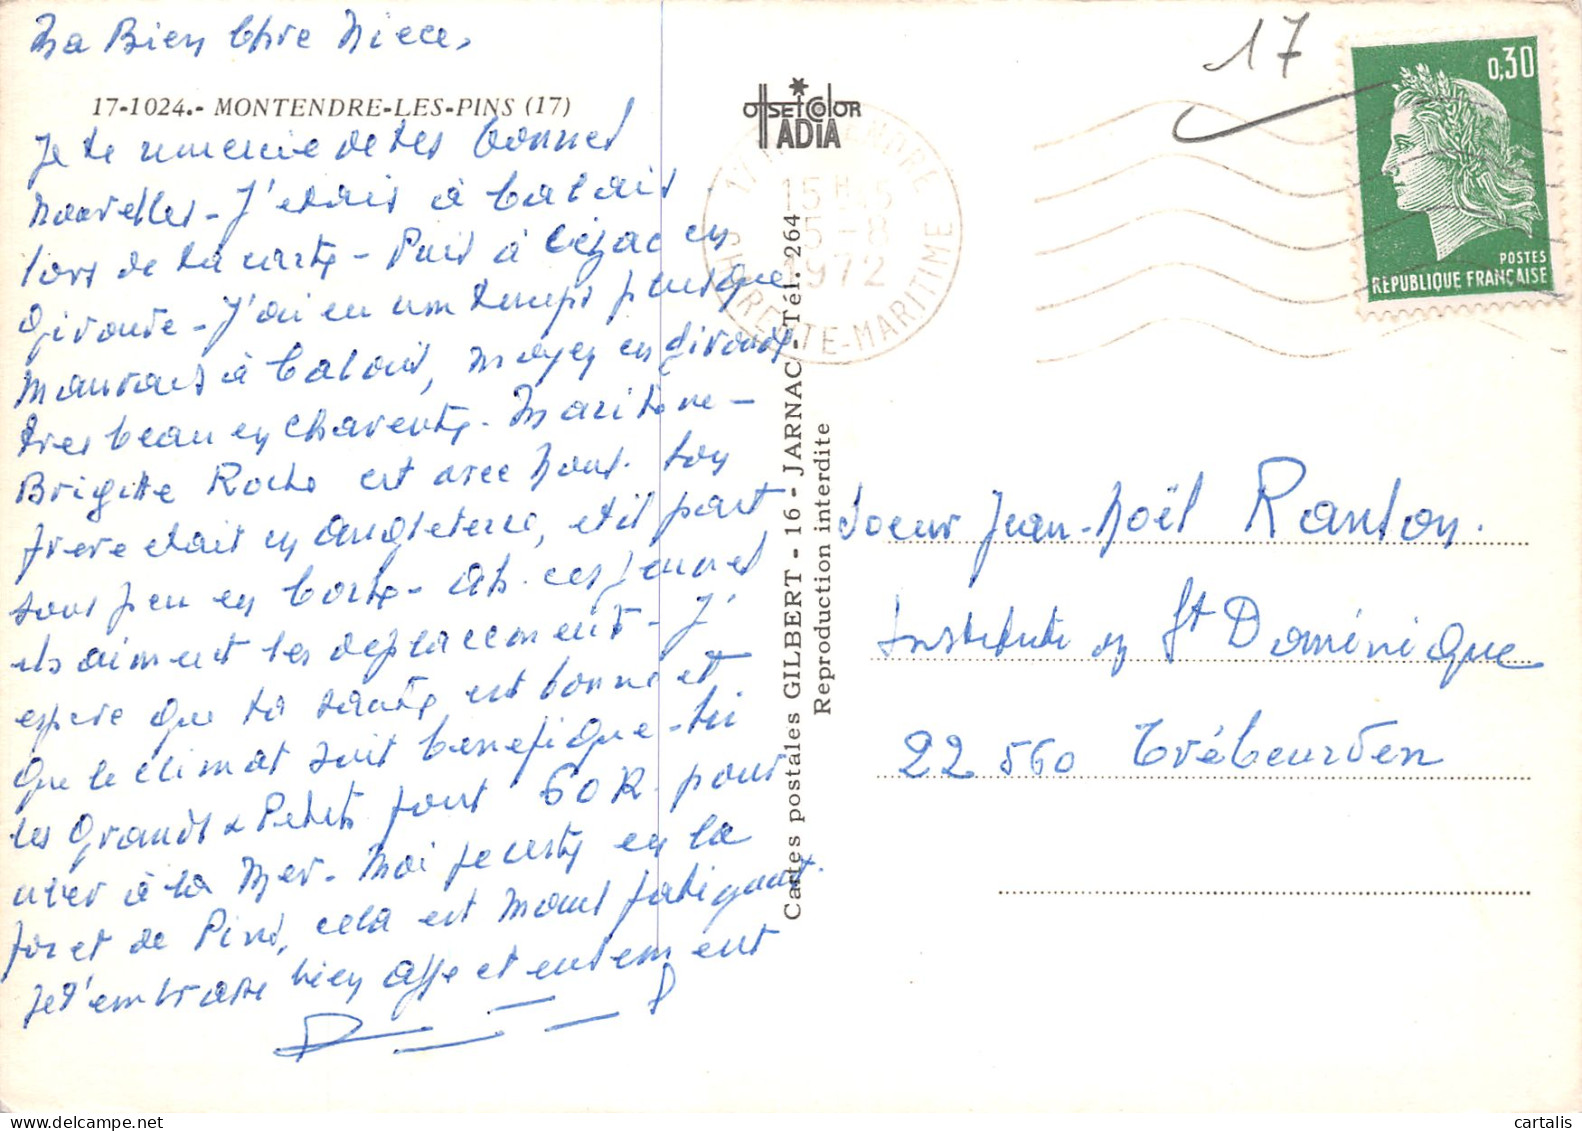 Ma Bien Chère Niece,
17-1024.- MONTENDRE-LES-PINS (17)
Je te remercie de tes bonnes
nouvelles - J'etais à Calais
lors de ta carte - Puis à Cézac en
Gironde - J'ai eu un temps presque
mauvais à Calais, moyen en Gironde
tres beau en Charente-Maritime -
Brigitte Roche est avec nous. Son
frere etait en Angleterre, et il part
sous peu en Corse - Ah ces jeunes
ils aiment les deplacements - J'
espere que ta santé est bonne et
que le climat soit benefique - Ici
les Grands & Petits font 60 K. pour
aller à la Mer - Moi je reste en la
foret de Pins, cela est moins fatiguant.
Je t'embrasse bien affectueusement
OffSET COLOR
ADIA
17 MONTENDRE
15H15
5-8
1972
CHARENTE-MARITIME
17
0,30
POSTES
RÉPUBLIQUE FRANÇAISE
Cartes postales GILBERT - 16 - JARNAC - Tél. 264
Reproduction interdite
Soeur Jean-Noël Ranson.
Institution St Dominique
22 560 Trébeurden
cartalis